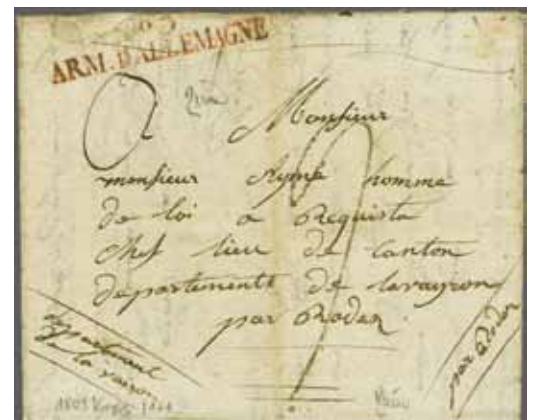 ARM. D'ALLEMAGNE
A Monsieur
monsieur Aymé homme
de loi a Requista
chef lieu de canton
departements de lavayron
par Rodez
departement
la vairon
par Rodez
1809